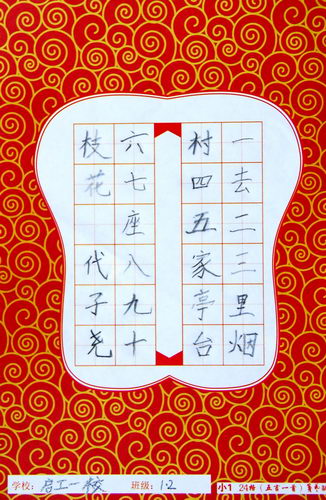 一去二三里烟
村四五家亭台
六七座八九十
枝花 代子尧
学校：启工一校 班级：1.2
小1 24格（五言一首）